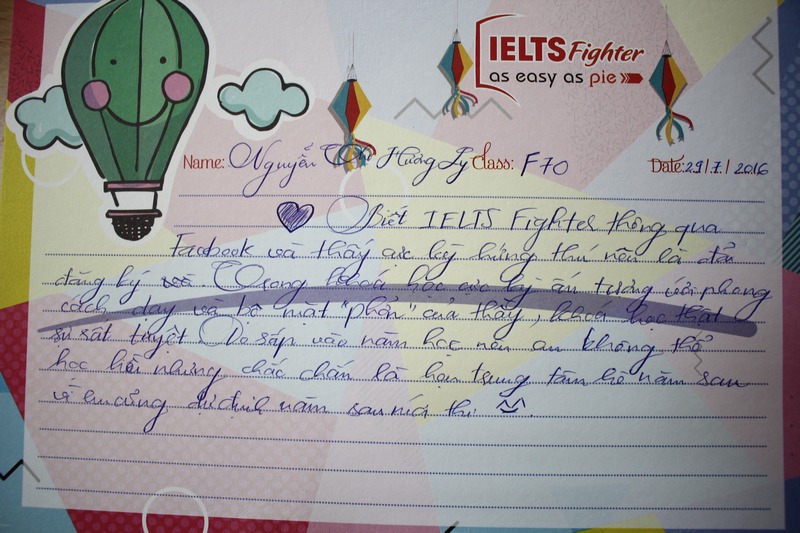 IELTS Fighter
as easy as pie
Name: Nguyễn Thị Hương Ly Class: F70 Date: 29/7/2016
Biết IELTS Fighter thông qua
Facebook và thấy cực kỳ hứng thú nên là đã
đăng ký. Trong khoá học cực kỳ ấn tượng với phong
cách dạy và bộ mặt "phởn" của thầy, khoá học thật
sự rất tuyệt. Do sắp vào năm học nên em không thể
học hè nhưng chắc chắn là hẹn trung tâm hè năm sau
vì em cũng dự định năm sau mới thi